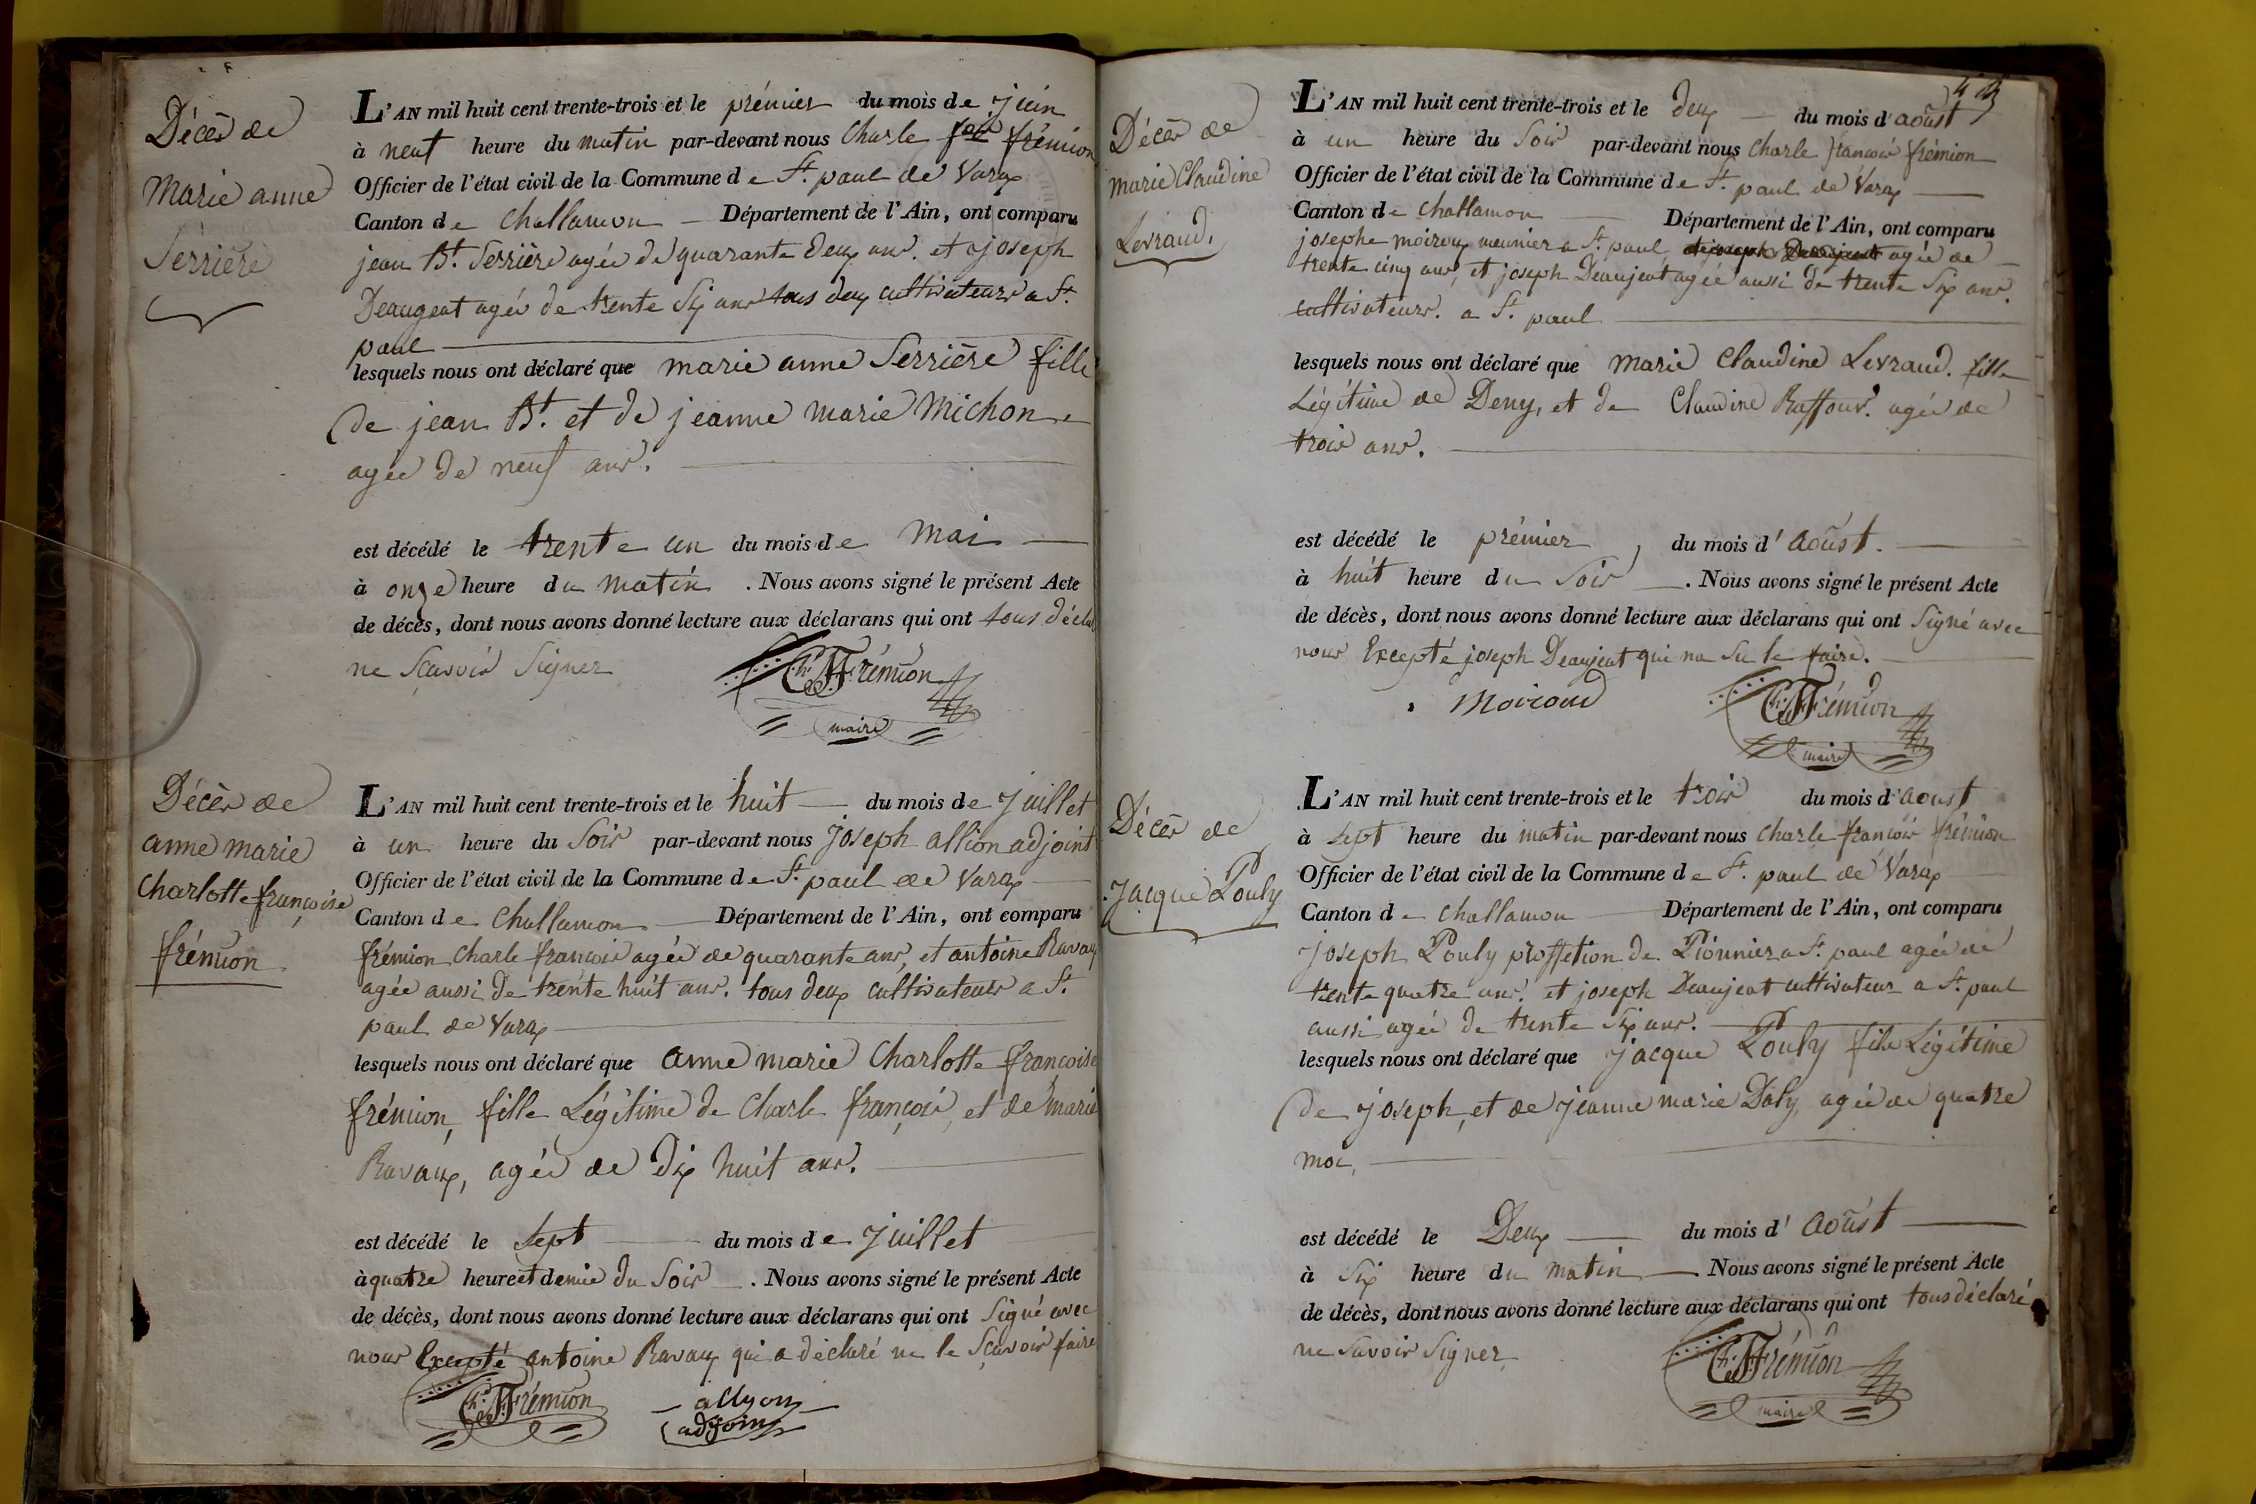 Décès de
Marie anne
Serrière
L'AN mil huit cent trente-trois et le prémier du mois de juin
à neuf heure du matin par-devant nous Charle fois frémion
Officier de l'état civil de la Commune de St. paul de Varax
Canton de Challamon Département de l'Ain, ont comparu
jean Bt. Serrière agée de quarante deux ans. et joseph
Deaugeat agée de trente six ans tous deux cultivateurs a St.
paul
lesquels nous ont déclaré que marie anne Serrière fille
de jean Bt. et de jeanne marie Michon
agée de neuf ans.
est décédé le trente un du mois de Mai
à onze heure du matin . Nous avons signé le présent Acte
de décès, dont nous avons donné lecture aux déclarans qui ont tous déclaré
ne Sçavoir Signer
Ch. F. Frémion
maire
Décès de
anne marie
Charlotte françoise
frémion
L'AN mil huit cent trente-trois et le huit du mois de juillet
à un heure du Soir par-devant nous joseph allion adjoint
Officier de l'état civil de la Commune de St. paul de Varax
Canton de Challamon Département de l'Ain, ont comparu
frémion Charle francois agée de quarante ans, et antoine Ravaux
agée aussi de trente huit ans. tous deux cultivateurs a St.
paul de Varax
lesquels nous ont déclaré que anne marie Charlotte francoise
frémion, fille Légitime de Charle françois, et de marie
Ravaux, agée de dix huit ans.
est décédé le Sept du mois de juillet
à quatre heure et demie du Soir . Nous avons signé le présent Acte
de décès, dont nous avons donné lecture aux déclarans qui ont Signé avec
nous Excepté antoine Ravaux qui a déclaré ne le Sçavoir faire
Ch. F. Frémion
allyon
adjoint
Décès de
marie Claudine
Levraud.
L'AN mil huit cent trente-trois et le deux du mois d'aoûst
à un heure du Soir par-devant nous Charle francois frémion
Officier de l'état civil de la Commune de St. paul de Varax
Canton de Challamon Département de l'Ain, ont comparu
josephe moiroux meunier a St. paul agée de
trente cinq ans, et joseph Deaujeat agée aussi de trente Six ans.
cultivateurs. a St. paul
lesquels nous ont déclaré que Marie Claudine Levraud. fille
Légitime de Deny, et de Claudine Raffour. agée de
trois ans.
est décédé le prémier du mois d'aoûst.
à huit heure du Soir . Nous avons signé le présent Acte
de décès, dont nous avons donné lecture aux déclarans qui ont Signé avec
nous Excepté joseph Deaujeat qui na Su le faire.
Moiroud
Ch. F. Frémion
maire
Décès de
Jacque Pouly
L'AN mil huit cent trente-trois et le trois du mois d'aoust
à Sept heure du matin par-devant nous Charle francois frémion
Officier de l'état civil de la Commune de St. paul de Varax
Canton de Challamon Département de l'Ain, ont comparu
joseph Pouly proffetion de Pionnier a St. paul agée de
trente quatre ans. et joseph Deaujeat cultivateur a St. paul
aussi agée de trente Six ans.
lesquels nous ont déclaré que jacque Pouly fils Légitime
de joseph, et de jeanne marie Daly, agée de quatre
moi,
est décédé le Deux du mois d'aoûst
à Six heure du matin Nous avons signé le présent Acte
de décès, dont nous avons donné lecture aux déclarans qui ont tous déclaré
ne Savoir Signer
Ch. F. Frémion
maire